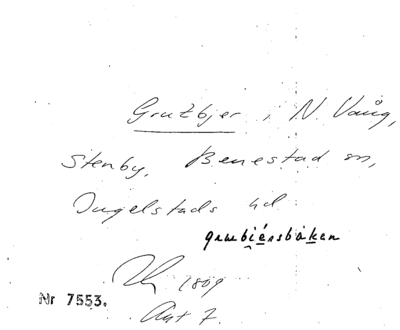 Grutbjer, N. Vång,
Stenby, Benestad sn,
Ingelstads hd.
grɯbiérsbakən
1809
Nr 7553.
Akt 7.